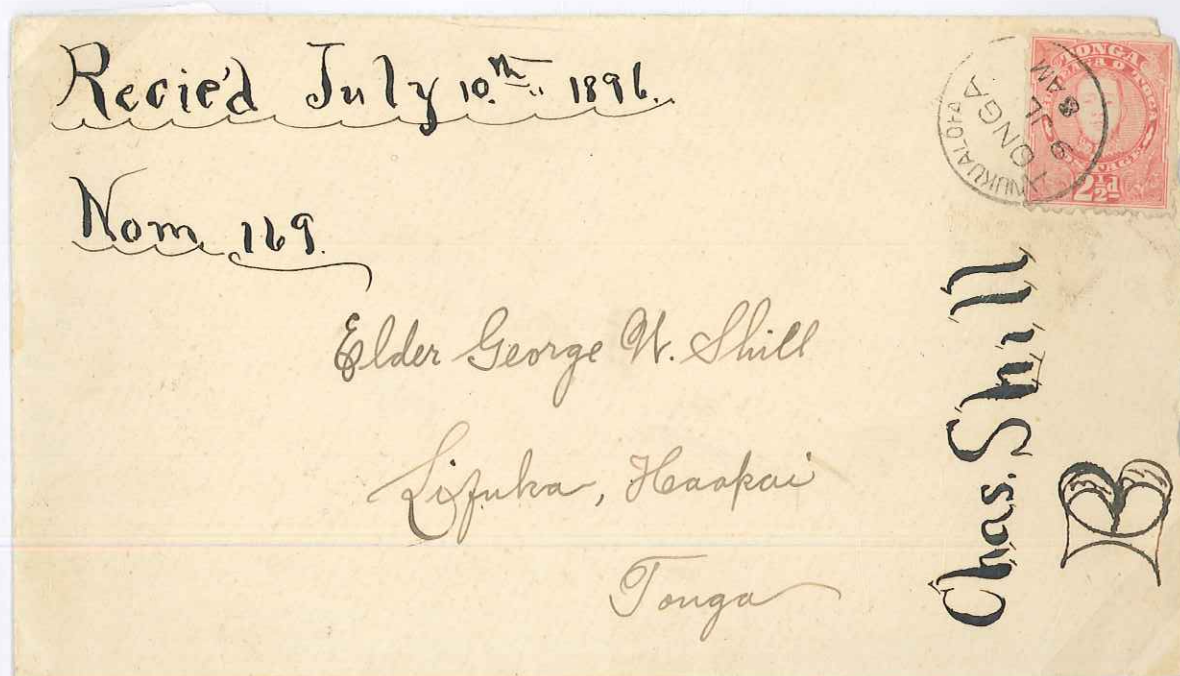 Recie'd July 10.th 1896.
Nom 169.
TONGA
2½d
NUKUALOFA
TONGA
9 JL
8 AM
Elder George W. Shill
Lifuka, Haapai
Tonga
Chas. Shill
B